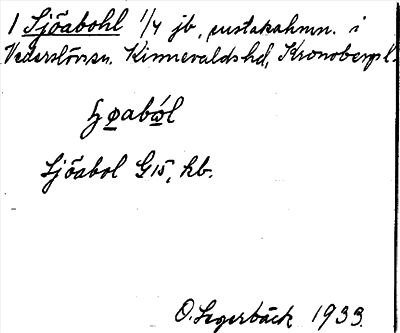 1 Sjöabohl 1/4 jb, rustakahmn. i
Vederslövssn. Kinnevaldshd, Kronobergs l.
Sjöabol G 15, kb.
O. Segerbäck 1933.